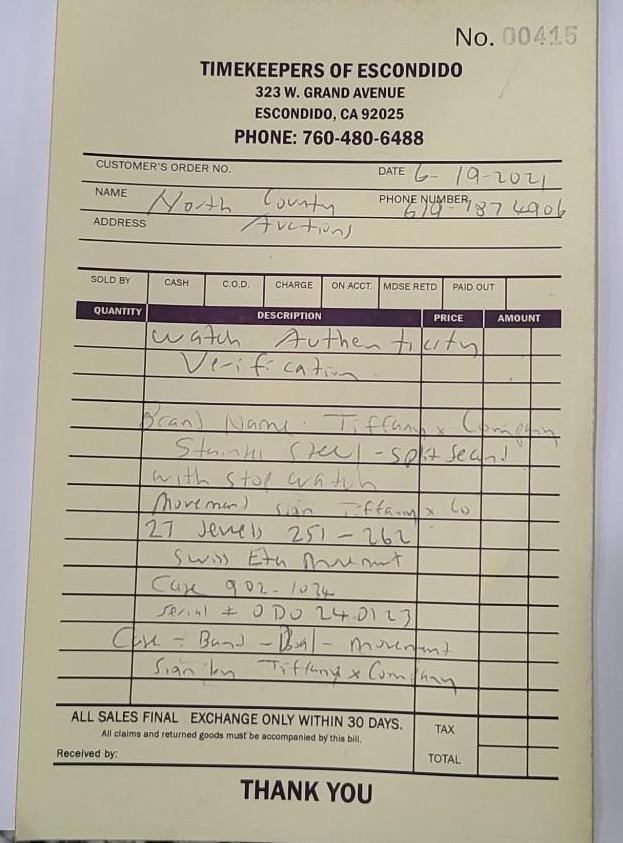 No. 00415
TIMEKEEPERS OF ESCONDIDO
323 W. GRAND AVENUE
ESCONDIDO, CA 92025
PHONE: 760-480-6488
CUSTOMER'S ORDER NO. DATE 6-19-2021
NAME North County PHONE NUMBER 619-787 4906
ADDRESS Auctions
SOLD BY CASH C.O.D. CHARGE ON ACCT. MDSE RETD PAID OUT
QUANTITY DESCRIPTION PRICE AMOUNT
Watch Authenticity
Verification
Brand Name. Tiffany x Company
Stainles steel - split second
with stop watch
Movement sign Tiffany x Co
27 Jewels 251-262
Swiss Eta Movemnt
Case 902.1034
serial # 0D0 24.0123
Case - Band - Dial - Movement
Sign by Tiffany x Company
ALL SALES FINAL EXCHANGE ONLY WITHIN 30 DAYS. TAX
All claims and returned goods must be accompanied by this bill.
Received by: TOTAL
THANK YOU